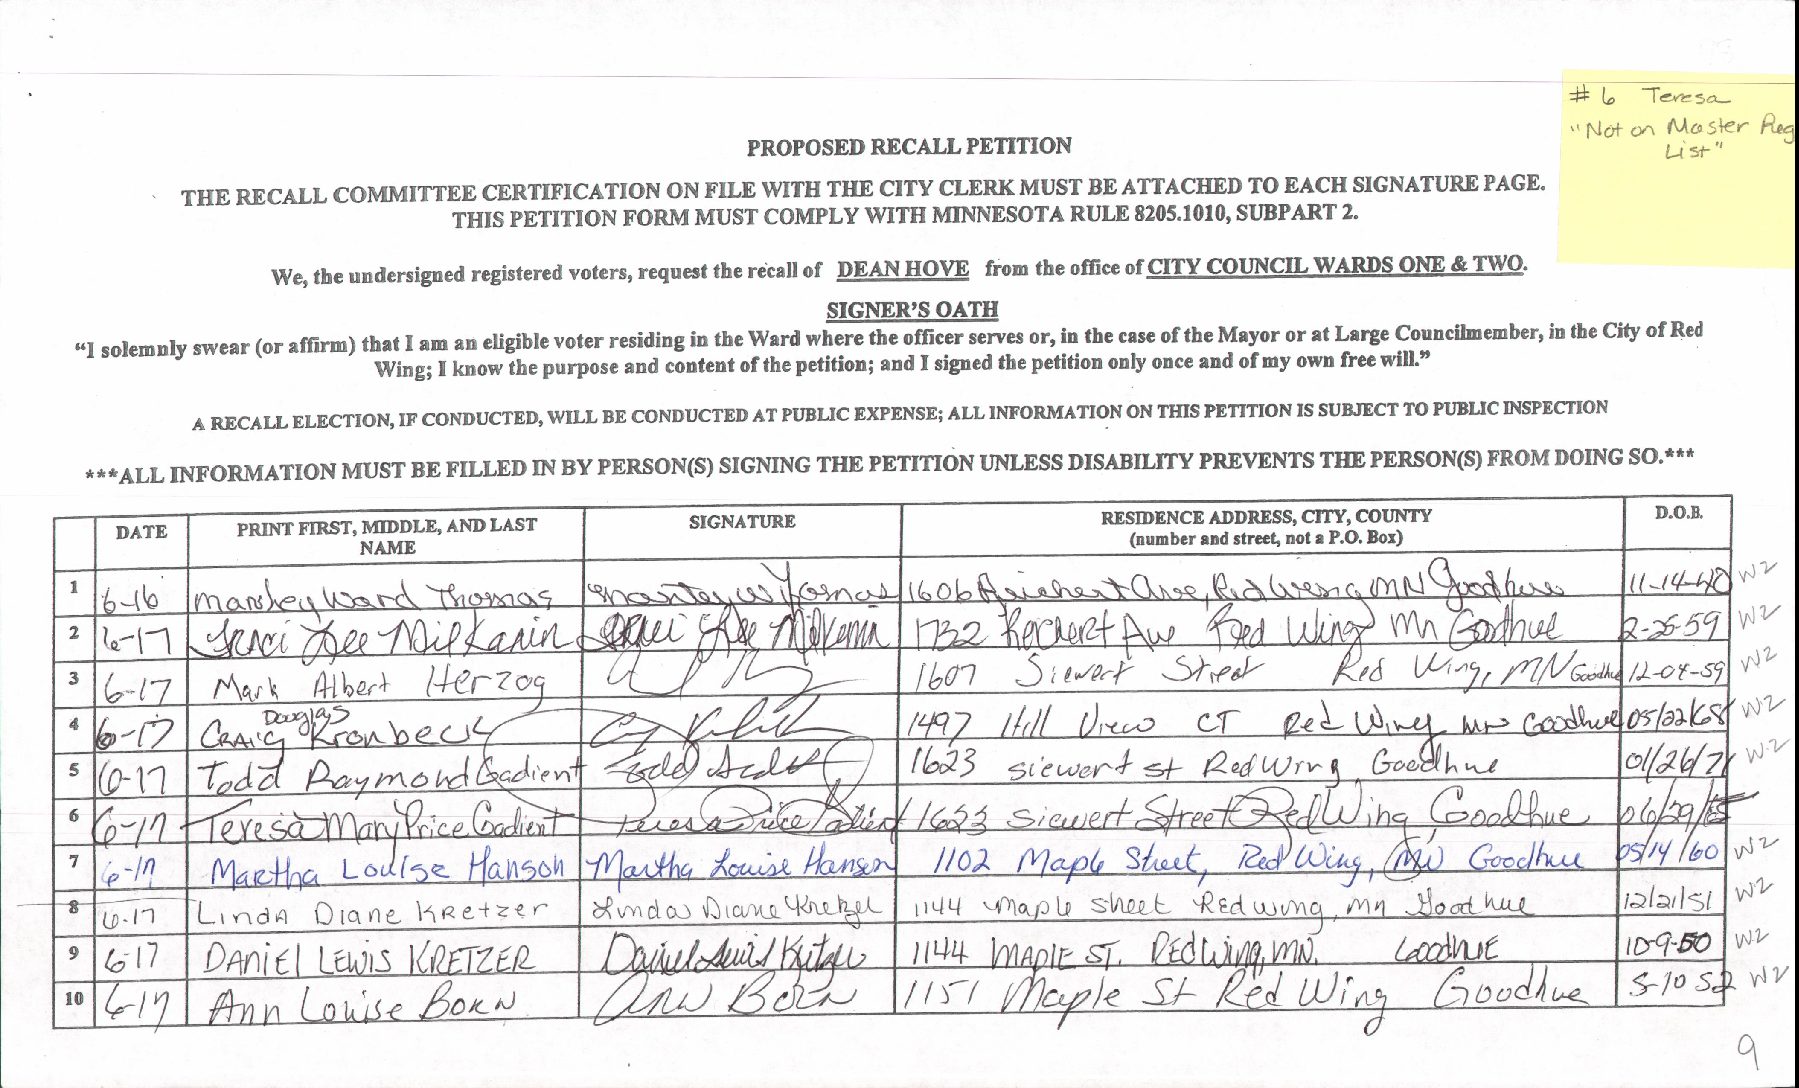 # 6 Teresa
"Not on Master Reg
List"
PROPOSED RECALL PETITION
THE RECALL COMMITTEE CERTIFICATION ON FILE WITH THE CITY CLERK MUST BE ATTACHED TO EACH SIGNATURE PAGE.
THIS PETITION FORM MUST COMPLY WITH MINNESOTA RULE 8205.1010, SUBPART 2.
We, the undersigned registered voters, request the recall of DEAN HOVE from the office of CITY COUNCIL WARDS ONE & TWO.
SIGNER'S OATH
"I solemnly swear (or affirm) that I am an eligible voter residing in the Ward where the officer serves or, in the case of the Mayor or at Large Councilmember, in the City of Red
Wing; I know the purpose and content of the petition; and I signed the petition only once and of my own free will."
A RECALL ELECTION, IF CONDUCTED, WILL BE CONDUCTED AT PUBLIC EXPENSE; ALL INFORMATION ON THIS PETITION IS SUBJECT TO PUBLIC INSPECTION
***ALL INFORMATION MUST BE FILLED IN BY PERSON(S) SIGNING THE PETITION UNLESS DISABILITY PREVENTS THE PERSON(S) FROM DOING SO.***
DATE PRINT FIRST, MIDDLE, AND LAST NAME SIGNATURE RESIDENCE ADDRESS, CITY, COUNTY (number and street, not a P.O. Box) D.O.B.
1 6-16 Marshey Ward Thomas 1606 Ave, Red Wing MN Goodhue 11-14-40 W2
2 6-17 Lee Milkanin Lee 1732 Ave Red Wing Mn Goodhue 2-26-59 W2
3 6-17 Mark Albert Herzog 1607 Siewert Street Red Wing, MN Goodhue 12-04-59 W2
4 6-17 CRAIG Douglas Kronbeck 1497 Hill View CT Red Wing Mn Goodhue 05/22/68 W2
5 6-17 Todd Raymond Gadient 1623 Siewert St Red Wing Goodhue 01/26/71 W-2
6 6-17 Teresa Mary Price Gadient Teresa Price Gadient 1623 Siewert Street Red Wing Goodhue 06/29/
7 6-17 Martha Louise Hanson Martha Louise Hanson 1102 Maple Street, Red Wing, MN Goodhue 05/14/60 W2
8 6-17 Linda Diane Kretzer Linda Diane Kretzer 1144 Maple Street Red Wing, Mn Goodhue 12/21/51 W2
9 6-17 DANIEL LEWIS KRETZER Daniel Lewis Kretzer 1144 MAPLE ST. RED Wing, MN. GoodHUE 10-9-50 W2
10 6-17 Ann Louise Born Ann Born 1151 Maple St Red Wing Goodhue 5-10 52 W2
9